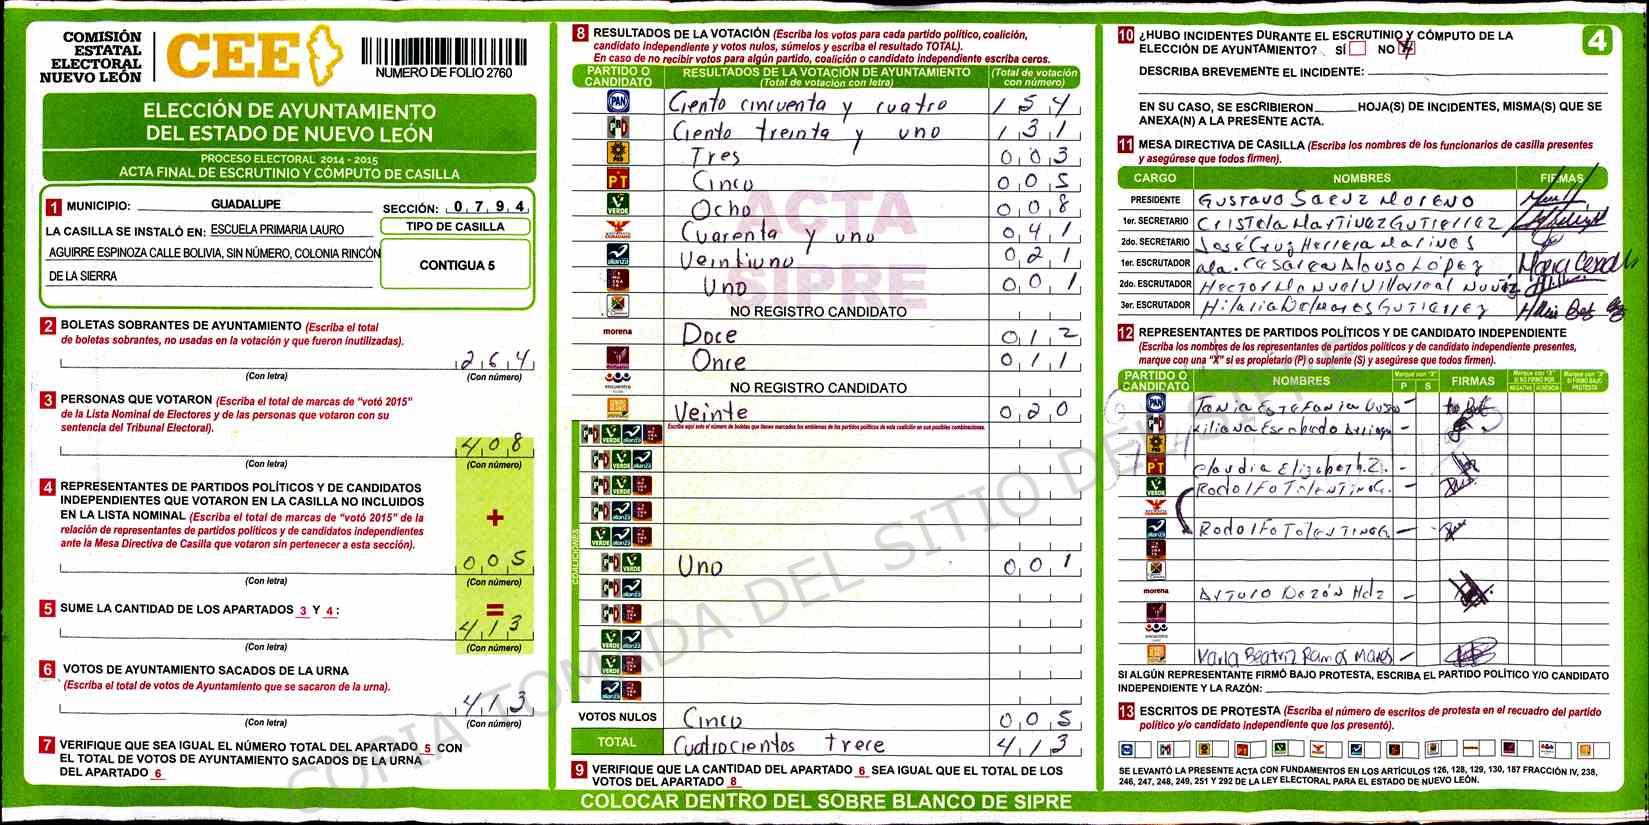 COMISIÓN
ESTATAL
ELECTORAL
NUEVO LEÓN
CEE
NUMERO DE FOLIO 2760
ELECCIÓN DE AYUNTAMIENTO
DEL ESTADO DE NUEVO LEÓN
PROCESO ELECTORAL 2014 - 2015
ACTA FINAL DE ESCRUTINIO Y CÓMPUTO DE CASILLA
1 MUNICIPIO: GUADALUPE SECCIÓN: 0,7,9,4
LA CASILLA SE INSTALÓ EN: ESCUELA PRIMARIA LAURO
AGUIRRE ESPINOZA CALLE BOLIVIA, SIN NÚMERO, COLONIA RINCÓN
DE LA SIERRA
TIPO DE CASILLA
CONTIGUA 5
2 BOLETAS SOBRANTES DE AYUNTAMIENTO (Escriba el total
de boletas sobrantes, no usadas en la votación y que fueron inutilizadas).
2,6,4
(Con letra) (Con número)
3 PERSONAS QUE VOTARON (Escriba el total de marcas de "votó 2015"
de la Lista Nominal de Electores y de las personas que votaron con su
sentencia del Tribunal Electoral).
4,0,8
(Con letra) (Con número)
4 REPRESENTANTES DE PARTIDOS POLÍTICOS Y DE CANDIDATOS
INDEPENDIENTES QUE VOTARON EN LA CASILLA NO INCLUIDOS
EN LA LISTA NOMINAL (Escriba el total de marcas de "votó 2015" de la
relación de representantes de partidos políticos y de candidatos independientes
ante la Mesa Directiva de Casilla que votaron sin pertenecer a esta sección).
+
0,0,5
(Con letra) (Con número)
5 SUME LA CANTIDAD DE LOS APARTADOS 3 Y 4:
=
4,1,3
(Con letra) (Con número)
6 VOTOS DE AYUNTAMIENTO SACADOS DE LA URNA
(Escriba el total de votos de Ayuntamiento que se sacaron de la urna).
4,1,3
(Con letra) (Con número)
7 VERIFIQUE QUE SEA IGUAL EL NÚMERO TOTAL DEL APARTADO 5 CON
EL TOTAL DE VOTOS DE AYUNTAMIENTO SACADOS DE LA URNA
DEL APARTADO 6
8 RESULTADOS DE LA VOTACIÓN (Escriba los votos para cada partido político, coalición,
candidato independiente y votos nulos, súmelos y escriba el resultado TOTAL).
En caso de no recibir votos para algún partido, coalición o candidato independiente escriba ceros.
PARTIDO O CANDIDATO RESULTADOS DE LA VOTACIÓN DE AYUNTAMIENTO (Total de votación con letra) (Total de votación con número)
PAN Ciento cincuenta y cuatro 1,5,4
PRD Ciento treinta y uno 1,3,1
PRD Tres 0,0,3
PT Cinco 0,0,5
VERDE Ocho 0,0,8
Cuarenta y uno 0,4,1
alianza Veintiuno 0,2,1
Uno 0,0,1
NO REGISTRO CANDIDATO
morena Doce 0,1,2
Once 0,1,1
encuentro NO REGISTRO CANDIDATO
Veinte 0,2,0
Escriba aquí solo el número de boletas que tienen marcados los emblemas de los partidos políticos de esta coalición en sus posibles combinaciones.
COALICIONES
VERDE Uno 0,0,1
VOTOS NULOS Cinco 0,0,5
TOTAL Cuatrocientos trece 4,1,3
9 VERIFIQUE QUE LA CANTIDAD DEL APARTADO 6 SEA IGUAL QUE EL TOTAL DE LOS
VOTOS DEL APARTADO 8
ACTA
SIPRE
COPIA TOMADA DEL SITIO DEL SIPRE
COLOCAR DENTRO DEL SOBRE BLANCO DE SIPRE
4
10 ¿HUBO INCIDENTES DURANTE EL ESCRUTINIO Y CÓMPUTO DE LA
ELECCIÓN DE AYUNTAMIENTO? SÍ NO X
DESCRIBA BREVEMENTE EL INCIDENTE:
EN SU CASO, SE ESCRIBIERON HOJA(S) DE INCIDENTES, MISMA(S) QUE SE
ANEXA(N) A LA PRESENTE ACTA.
11 MESA DIRECTIVA DE CASILLA (Escriba los nombres de los funcionarios de casilla presentes
y asegúrese que todos firmen).
CARGO NOMBRES FIRMAS
PRESIDENTE Gustavo Saenz Moreno
1er. SECRETARIO Cristela Martinez Gutierrez
2do. SECRETARIO José Cruz Herrera
1er. ESCRUTADOR Ma. Alonso López
2do. ESCRUTADOR Hector Manuel Villarreal
3er. ESCRUTADOR Hilaria Gutierrez
12 REPRESENTANTES DE PARTIDOS POLÍTICOS Y DE CANDIDATO INDEPENDIENTE
(Escriba los nombres de los representantes de partidos políticos y de candidato independiente presentes,
marque con una "X" si es propietario (P) o suplente (S) y asegúrese que todos firmen).
PARTIDO O CANDIDATO NOMBRES Marque con "X" P S FIRMAS Marque con "X" SI NO FIRMÓ POR NEGATIVA AUSENCIA Marque con "X" SI FIRMÓ BAJO PROTESTA
PAN Tania Estefania
Liliana Escobedo
PT Claudia Elizabeth
VERDE Rodolfo Tolentino G.
alianza Rodolfo Tolentino G.
morena Arturo Hdz
Karla Beatriz Ramos
SI ALGÚN REPRESENTANTE FIRMÓ BAJO PROTESTA, ESCRIBA EL PARTIDO POLÍTICO Y/O CANDIDATO
INDEPENDIENTE Y LA RAZÓN:
13 ESCRITOS DE PROTESTA (Escriba el número de escritos de protesta en el recuadro del partido
político y/o candidato independiente que los presentó).
SE LEVANTÓ LA PRESENTE ACTA CON FUNDAMENTOS EN LOS ARTÍCULOS 126, 128, 129, 130, 187 FRACCIÓN IV, 238,
246, 247, 248, 249, 251 Y 292 DE LA LEY ELECTORAL PARA EL ESTADO DE NUEVO LEÓN.